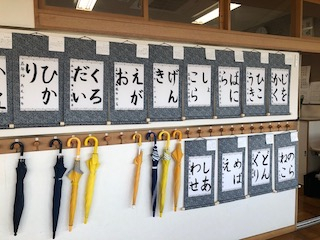 じを
かく
ひこ
うき
ばに
ら
げん
き
えが
お
くろ
だ
ひか
り
のら
ねこ
どん
ぐり
めば
え
しあ
わせ